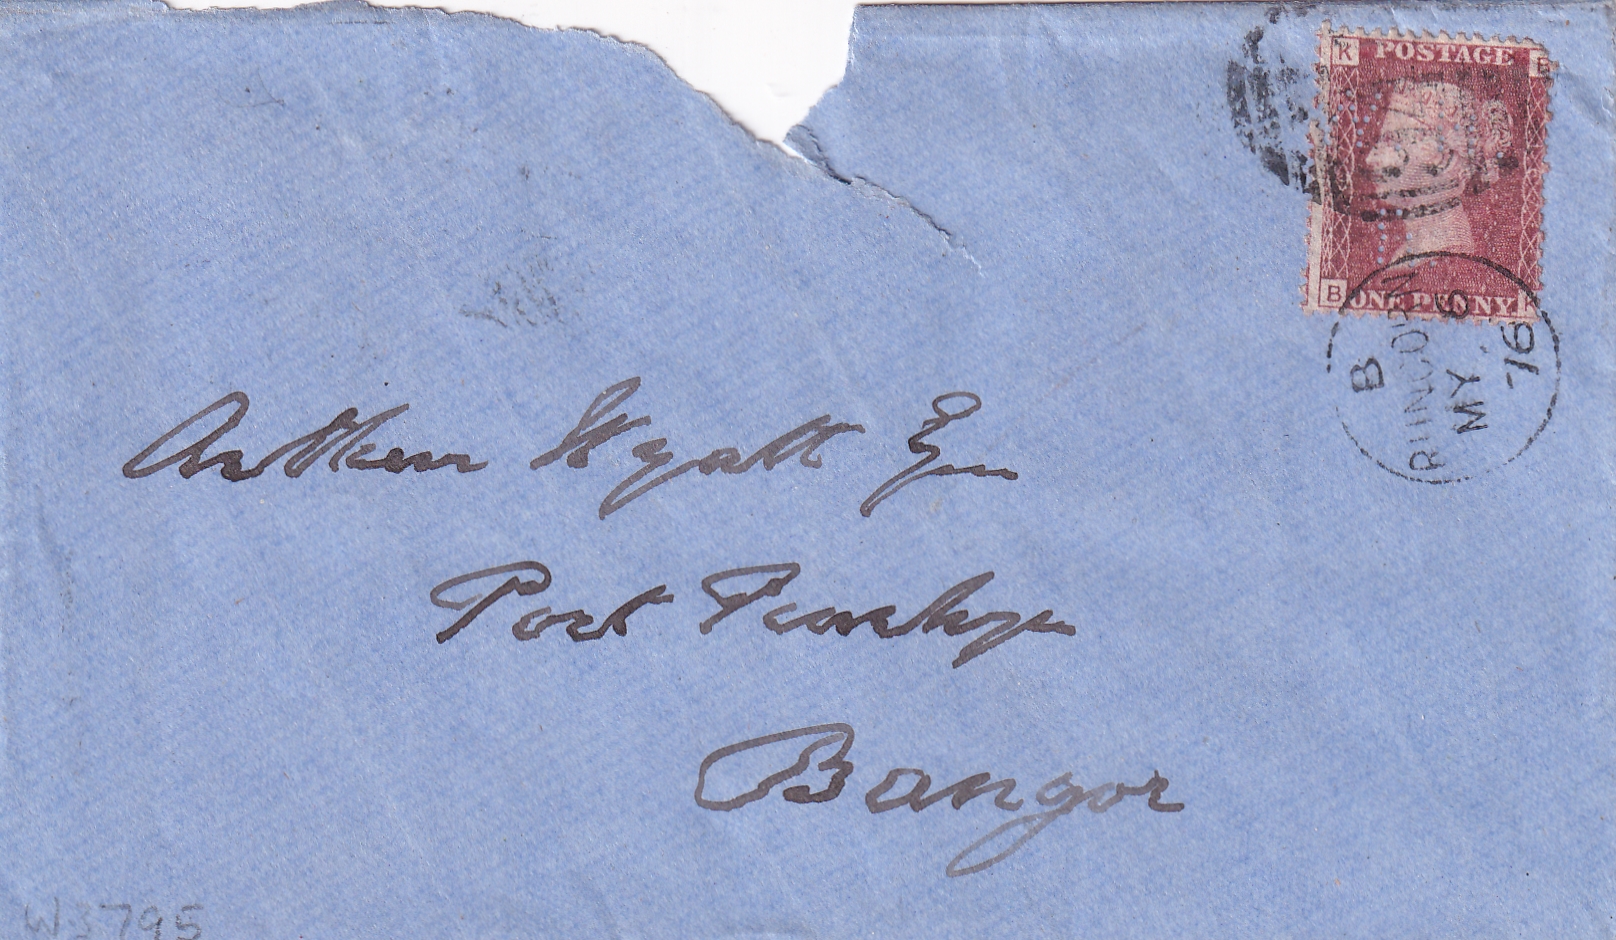 K POSTAGE E
B ONE PENNY
RUNCORN
B
MY 6
76
Arthur Wyatt Esq
Port Penrhyn
Bangor
W3795